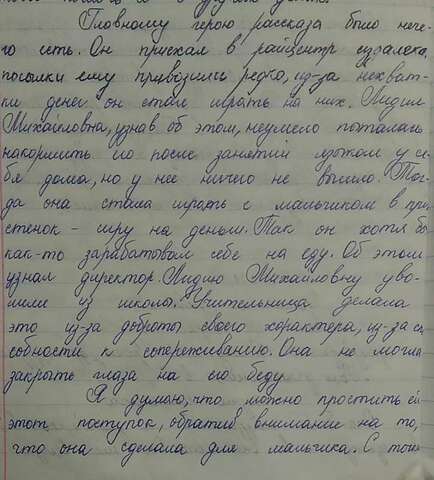 Главному герою рассказа было нече-
го есть. Он приехал в райцентр издалека,
посылки ему привозили редко, из-за нехват-
ки денег он стал играть на них. Лидия
Михайловна, узнав об этом, неумело пыталась
накормить его после занятий языком у се-
бя дома, но у нее ничего не вышло. Тог-
да она стала играть с мальчиком в при-
стенок - игру на деньги. Так он хотя бы
как-то зарабатывал себе на еду. Об этом
узнал директор. Лидию Михайловну уво-
лили из школы. Учительница делала
это из-за доброты своего характера, из-за сп
собности к сопереживанию. Она не могла
закрыть глаза на его беду.
Я думаю, что можно простить ей
этот поступок, обратив внимание на то,
что она сделала для мальчика. С точ